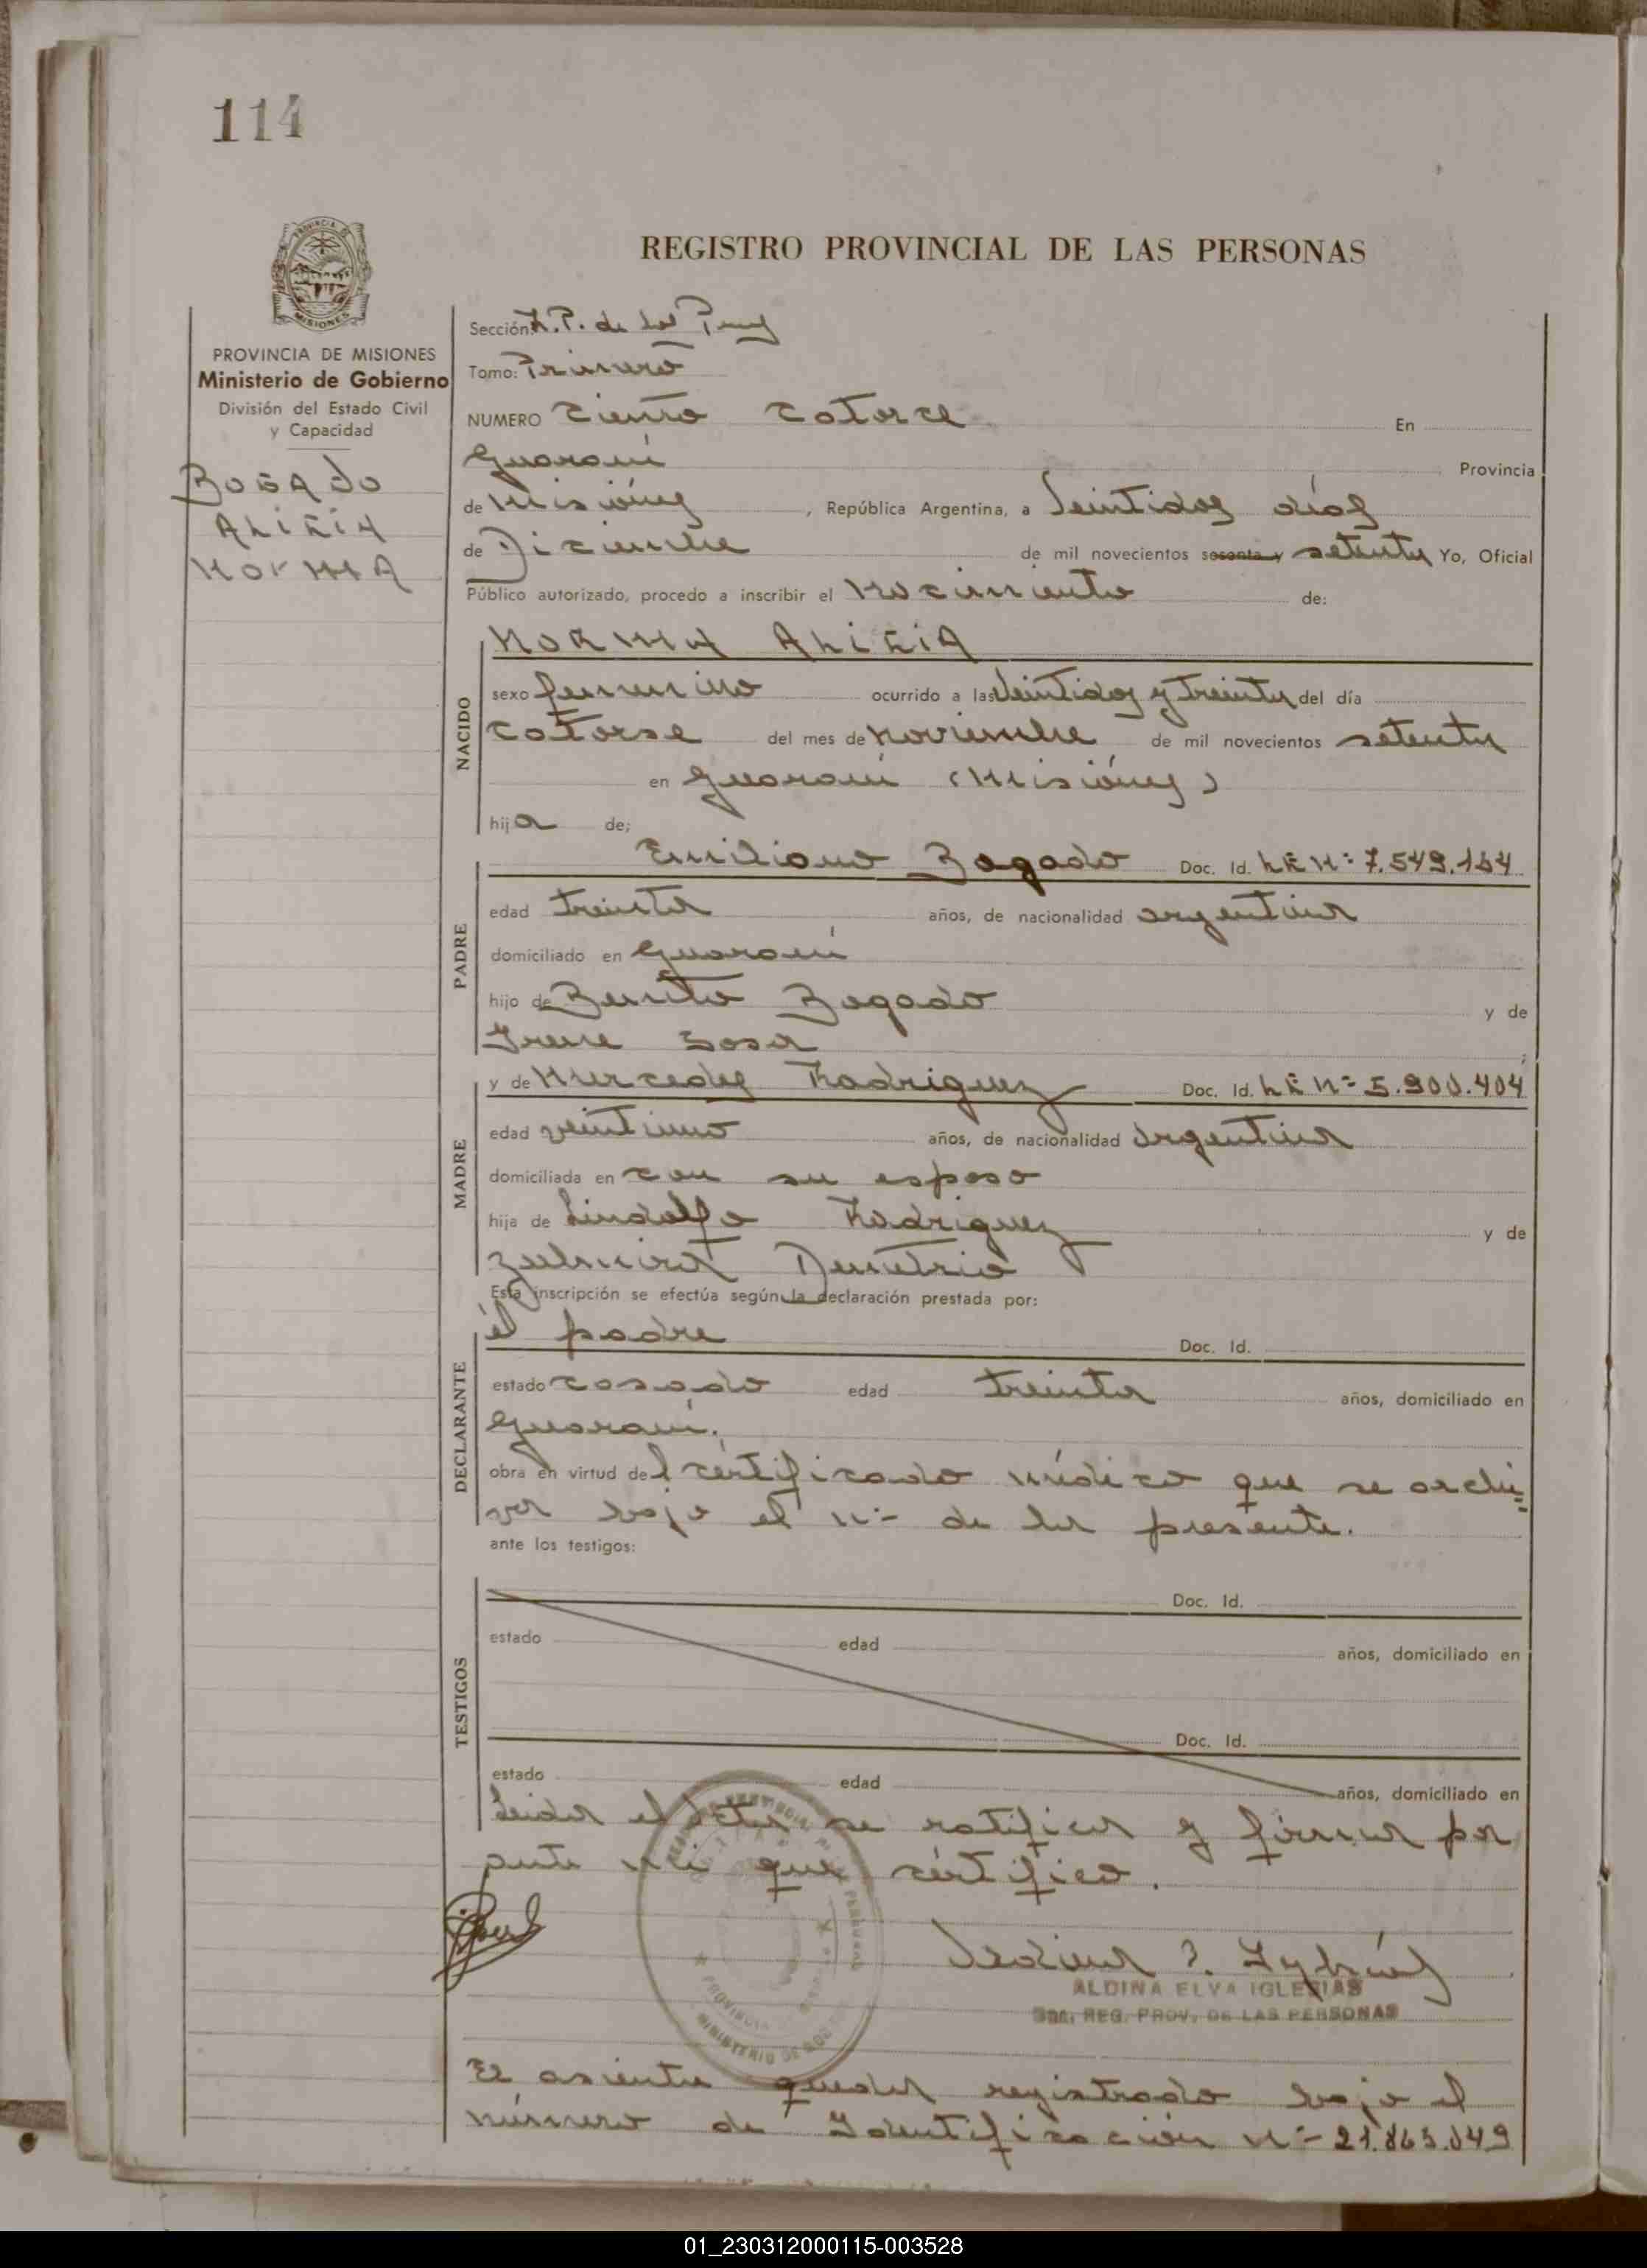 114
REGISTRO PROVINCIAL DE LAS PERSONAS
PROVINCIA DE MISIONES
Ministerio de Gobierno
División del Estado Civil
y Capacidad
BOGADO
ALICIA
NORMA
Sección
Tomo: Primero
NUMERO Ciento Catorce En
Guaraní Provincia
de Misiónes, República Argentina, a Veintidos días
de Diciembre de mil novecientos sesenta y setenta Yo, Oficial
Público autorizado, procedo a inscribir el Nacimiento de:
NACIDO
NORMA ALICIA
sexo femenino ocurrido a las Veintidos y Treinta del día
Catorse del mes de Noviembre de mil novecientos setenta
en Guaraní (Misiónes)
hija de;
PADRE
Emiliano Bogado Doc. Id. LE Nº 7.549.164
edad treinta años, de nacionalidad argentina
domiciliado en Guaraní
hijo de Benito Bogado y de
Irene Sosa ;
MADRE
y de Mercedes Rodriguez Doc. Id. LE Nº 5.900.404
edad veintiuno años, de nacionalidad argentina
domiciliada en con su esposo
hija de Lindolfo Rodriguez y de
Zulmira Demetrio
Esta inscripción se efectúa según la declaración prestada por:
DECLARANTE
él padre Doc. Id.
estado casado edad treinta años, domiciliado en
Guaraní.
obra en virtud del certificado médico que se archi=
va bajo el nº de la presente.
ante los testigos:
TESTIGOS
Doc. Id.
estado edad años, domiciliado en
Doc. Id.
estado edad años, domiciliado en
Leida el Acta se ratifica y firma por
ante mi que certifico.
ALDINA ELVA IGLESIAS
REG. PROV. DE LAS PERSONAS
El asiento queda registrado bajo el
número de Identificación nº 21.863.049
01_230312000115-003528